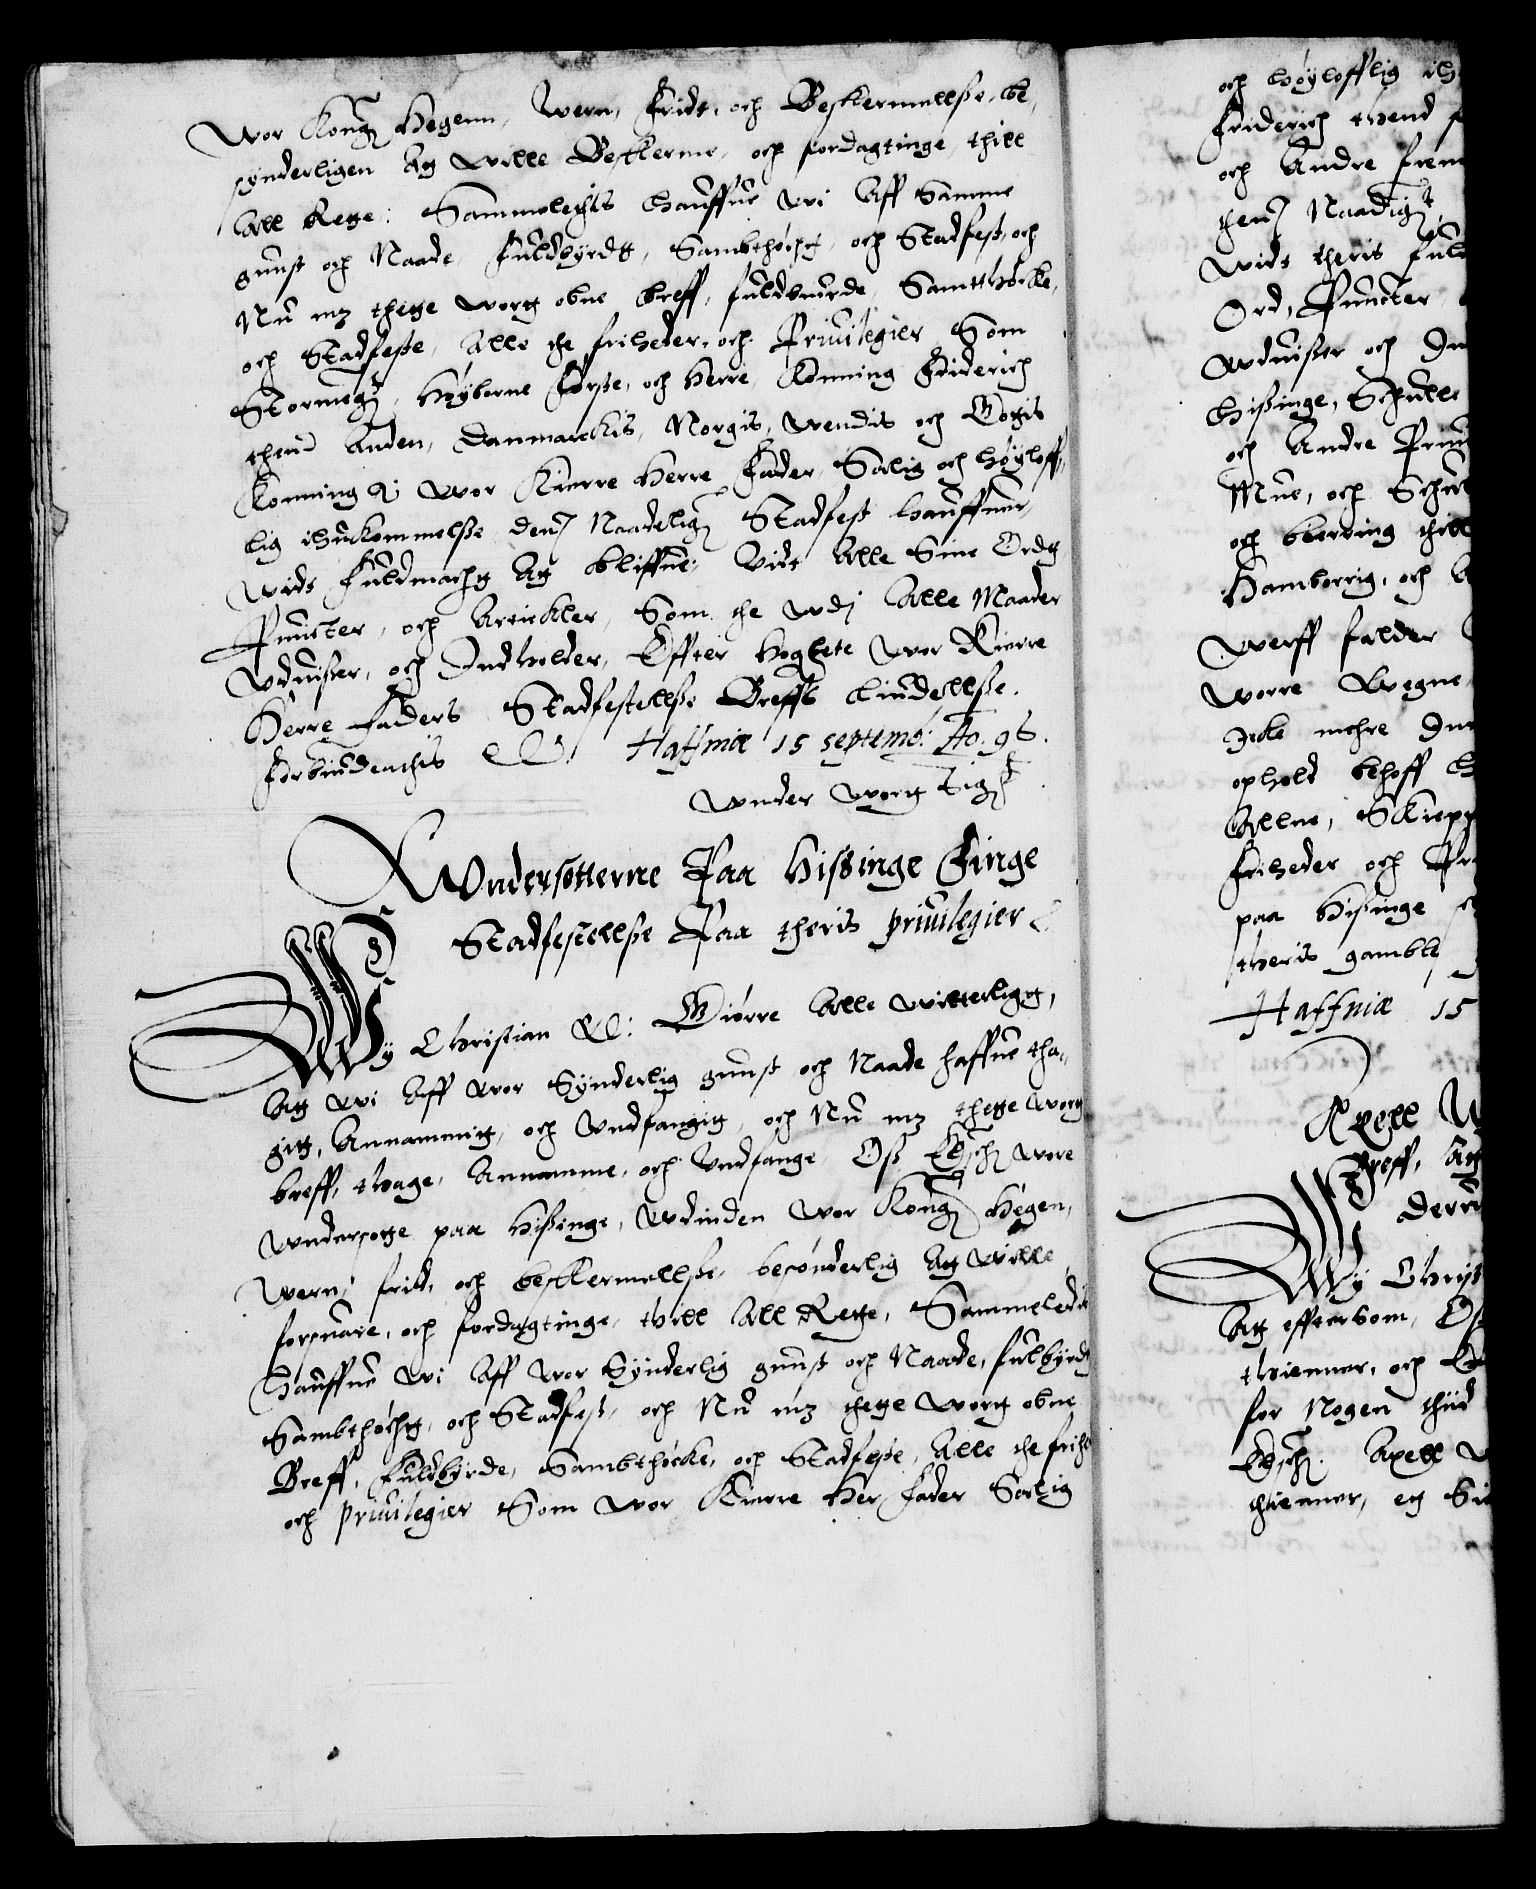 Wor Kong: Hegenn, Wern, Fridt, och Beskermellsse, be,
synderligen At wille Beskerme, och fordagtinge, thill
All Rette: Sammeledis hauffue wi Aff Samme
gunst och Naade, Fuldbyrdt, Sambthöcht, och Stadfest, och
Nu mz thette wortt obne breff, fuldbuirde, Samtthöcke,
och Stadfeste, Alle the friheder, och Priuilegier Som
Stormegt:, Höyborne Förste, och Herre, Konning Friderich
thend Anden, Danmarckis, Norgis, Wendis och Gottis
Konning &: wor Kierre Herre Fader, Salig och höyloff,,
lig ihukommelsse dem Naadeligst Stadfest hauffuer,
wids fuldmacht At bliffue, Vidt Alle Sine Ordt
Puncter, och Artickler, Som the wdj Alle Maader
Vduisser, och Indholder, Effter Høgbete wor Kierre
Herre Faders Stadfestellsse Breffs liudellsse.
Forbiudendis &c. Haffniæ 15 septemb: Ao. 96.
wnder wort Sig:
Wndersotterne Paa Hissinge Finge
Stadfestellsse Paa theris priuilegier &
Wy Christian &c: Giörre Alle witterligt,
At wi Aff wor Synderlig gunst och Naade haffue tha,,
git, Annammit, och Vndfangit, och Nu mz thette wort
breff, thage, Annamme, och Vndfange, Oss Elsch: wore
wndersotte paa Hissinge, wdinden wor Kong: Hegen,
wern, frid, och beskermellsse, besönderlig At wille
forsuare, och fordagtinge, thill All Rette, Sammeledis
hauffue wi Aff wor Synderlig gunst och Naade, fulbyrdt
Sambthöcht, och Stadfest, och Nu mz thette wort obne
Breff, Fuldbyrde, Sambthöcke, och Stadfeste, Alle the frihe
och priuilegier Som wor Kierre Her Fader Salig
och höylofflig ih
Friderich thend
och Andre frem
them Naadigst
wids theris fuld
Ord, Puncter
wduisser och In
Hissinge, Schulle
och Andre
och Schu
och thill
Hamborrig, och
Werff falder
worre Wegne
Icke mehre
ophold behoff
Allene, Skiepp
friheder och Pr
paa Hissinge
theris gamble
Haffniæ 15
Axell
Breff, At
Wy Christ
At efftersom, Os
thienner, och
for Nogen thiid
Elsch: Axell
thienner, et